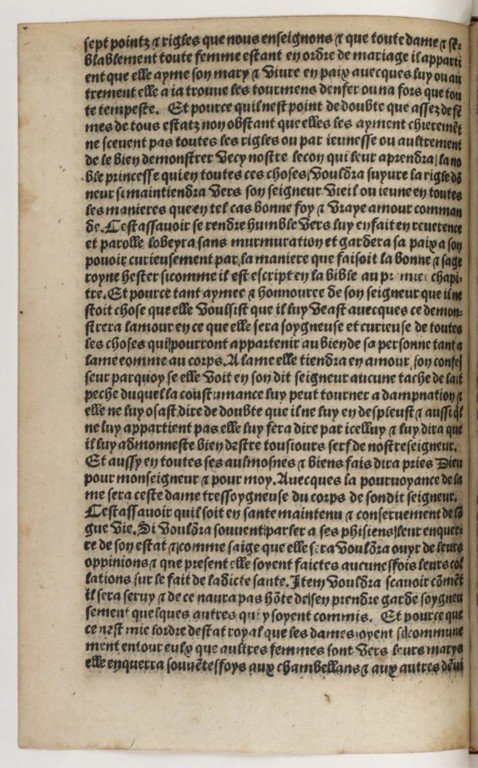 sept pointz ⁊ rigles que nous enseignons ⁊ que toute dame ⁊ sē-
blablement toute femme estant en ordre de mariage il apparti
ent que elle ayme son mary ⁊ viure en paix auecques luy ou au
trement elle a ia trouue les tourmens denfer ou na fors que tou
te tempeste. Et pource quil nest point de doubte que assez de fē
mes de tous estatz non obstant que elles les ayment chieremēt
ne sceuent pas toutes les rigles ou par ieunesse ou aultrement
de le bien demonstrer Vecy nostre lecon qui leur aprendra/ la no
ble princesse qui en toutes ces choses vouldra suyure la rigle dō
neur si maintiendra vers son seigneur vieil ou ieune en toutes
les manieres que en tel cas bonne foy ⁊ vraye amour comman
de. Cest assauoir se rendre humble vers luy en fait en reuerence
et parolle lobeyra sans murmuration et gardera sa paix a son
pouoir curieusement par la maniere que faisoit la bonne ⁊ sage
royne hester si comme il est escript en la bible au premier chapi-
tre. Et pource tant aymee ⁊ honnouree de son seigneur que il ne
stoit chose que elle voulsist que il luy veast auecques ce demon-
strera lamour en ce que elle sera soygneuse et curieuse de toutes
les choses qui pourront appartenir au bien de sa personne tant a
lame comme au corps. A lame elle tiendra en amour son confes
seur par quoy se elle voit en son dit seigneur aucune tache de lait
peche duquel la coustumance luy peut tourner a dampnation ⁊
elle ne luy osast dire de doubte que il ne luy en despleust ⁊ aussi q̄l
ne luy appartient pas elle luy fera dire par icelluy ⁊ luy dira que
il luy admonneste bien destre tousiours serf de nostre seigneur.
Et aussy en toutes ses aulmosnes ⁊ biens fais dira pries Dieu
pour monseigneur ⁊ pour moy. Auecques la pouruoyance de la
me sera ceste dame tressoygneuse du corps de sondit seigneur.
Cest assauoir quil soit en sante maintenu ⁊ conseruement de lō
gue vie. Si vouldra souuent parler a ses phisiens leur enquer
re de son estat ⁊ comme saige que elle sera vouldra ouyr de leurs
oppinions ⁊ que present elle soyent faictes aucunesfois leurs col
lations sur le fait de ladicte sante. Item vouldra scauoir cōmēt
il sera seruy ⁊ de ce naura pas hōte delsen prendre garde soygneu
sement quelques autres qui y soyent commis. Et pource que
ce nest mie lordre destat royal que les dames soyent si commune
ment entour eulx que aultres femmes sont vers leurs marys
elle enquerra souuētesfoys aux chambellans ⁊ aux autres dēui